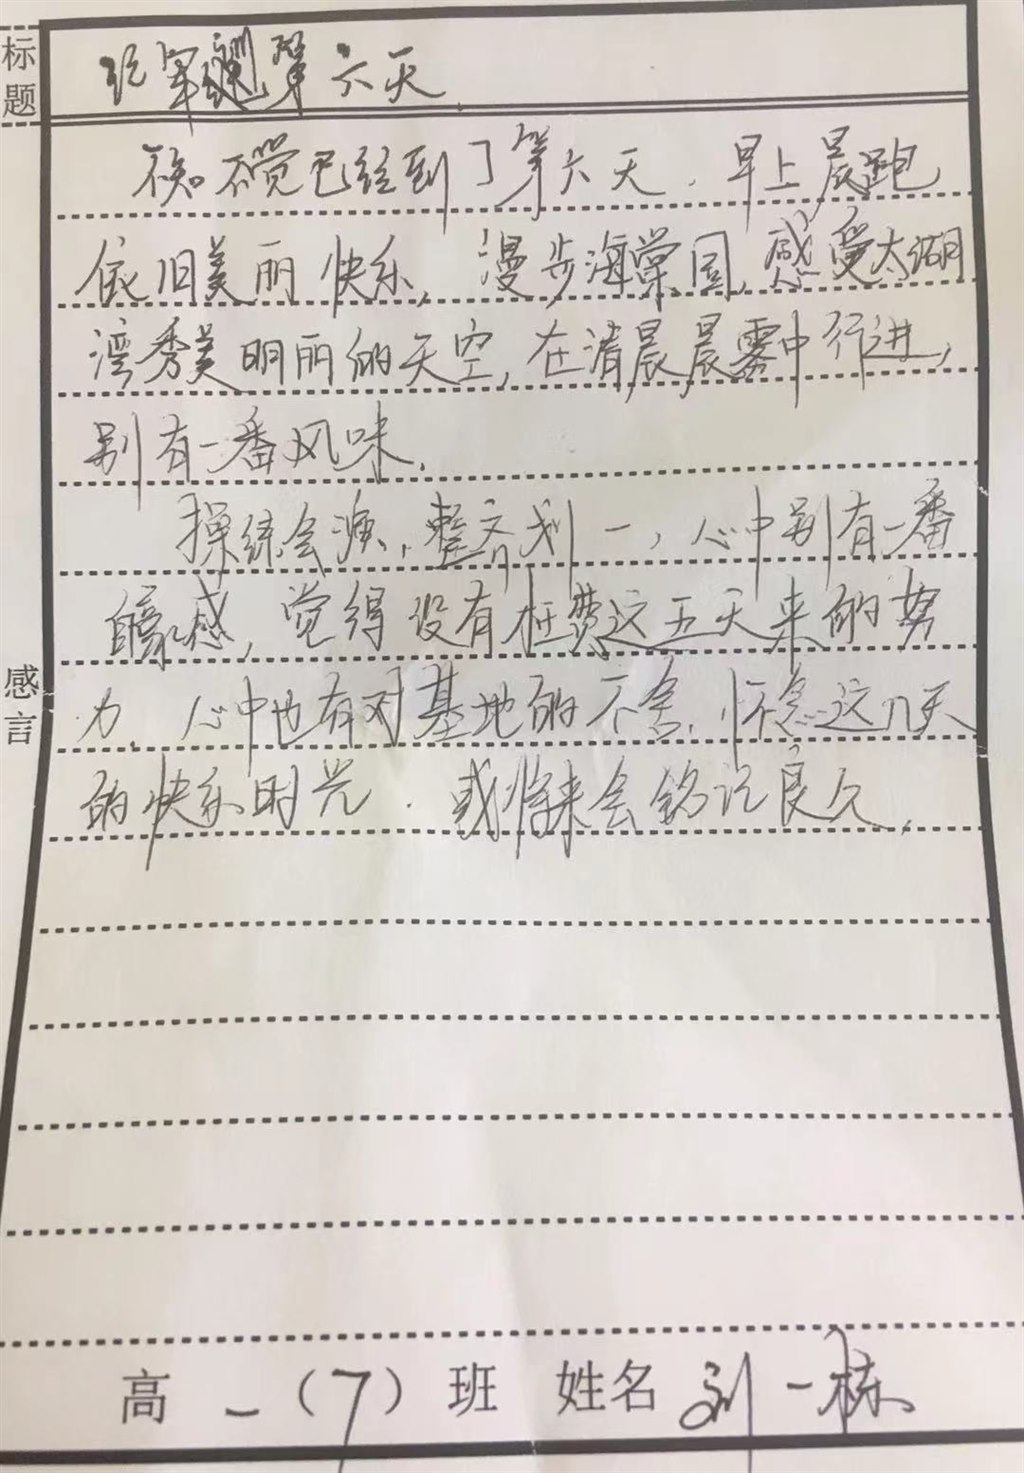 标题
记军训第六天
不知不觉已经到了第六天，早上晨跑
依旧美丽快乐，漫步海棠园，感受太湖
湾秀美明丽的天空，在清晨晨雾中行进，
别有一番风味.
操练会演，整齐划一，心中别有一番
自豪感，觉得没有枉费这五天来的努
力，心中也有对基地的不舍，怀念这几天
的快乐时光. 或将来会铭记良久.
感言
高一（7）班 姓名 刘一栋